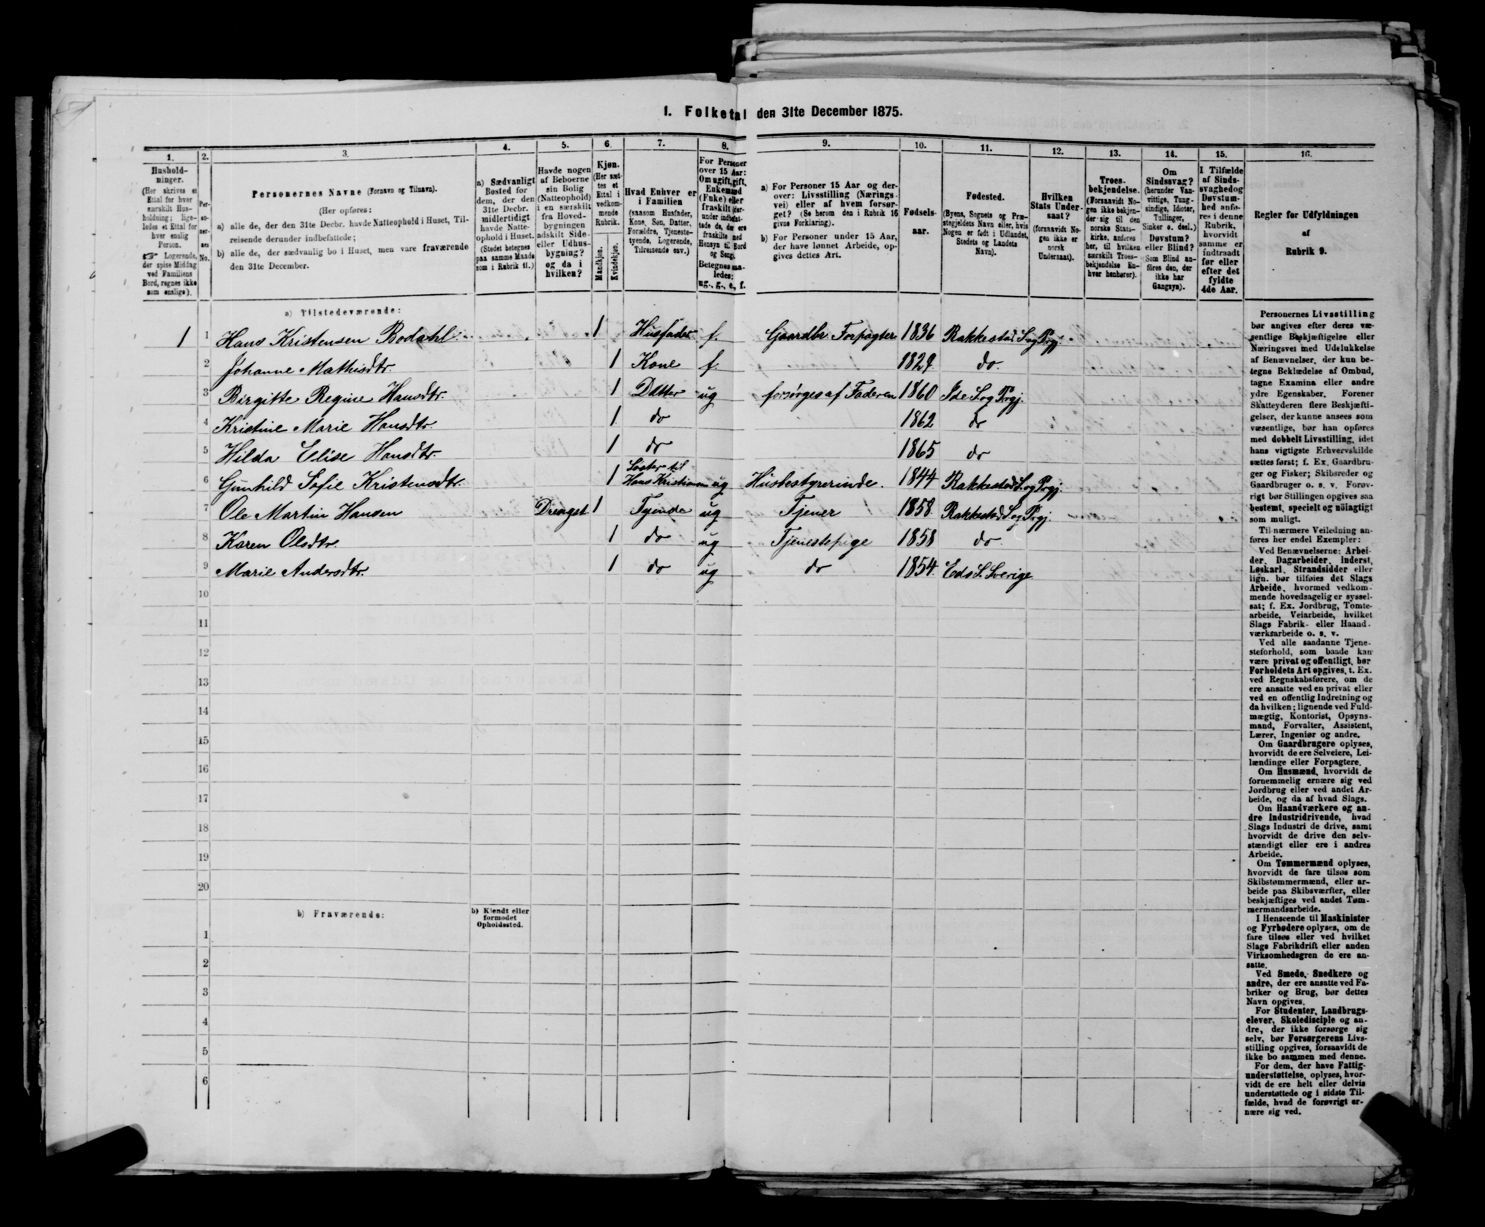 1. Folketal den 31te December 1875.
1. 2. 3. 4. 5. 6. 7. 8. 9. 10. 11. 12. 13. 14. 15. 16.
Hushold-
ninger.
(Her skrives et
Ettal for hver
særskilt Hus-
holdning; lige-
ledes et Ettal for
hver enslig
Person.
☞ Logerende,
der spise Middag
ved Familiens
Bord, regnes ikke
som enslige).
Per-
No.
Personernes Navne (Fornavn og Tilnavn).
(Her opføres:
a) alle de, der den 31te Decbr. havde Natteophold i Huset, Til-
reisende derunder indbefattede;
b) alle de, der sædvanlig bo i Huset, men vare fraværende
den 31te December.
a) Sædvanligt
Bosted for
dem, der den
31te Decbr.
midlertidigt
havde Natte-
ophold i Huset.
(Stedet betegnes
paa samme Maade
som i Rubrik 11.)
Havde nogen
af Beboerne
sin Bolig
(Natteophold)
i en særskilt
fra Hoved-
bygningen
adskilt Side-
eller Udhus-
bygning?
og da i
hvilken?
Kjøn.
(Her sæt-
tes et
Ettal i
vedkom-
mende
Rubrik.
Mandkjøn.
Kvindekjøn.
Hvad Enhver er
i Familien
(saasom Husfader,
Kone, Søn, Datter,
Forældre, Tjeneste-
tyende, Logerende,
Tilreisende osv.)
For Personer
over 15 Aar:
Om ugift, gift,
Enkemand
(Enke) eller
fraskilt
Betegnes saa-
ledes:
ug., g., e, f.
a) For Personer 15 Aar og der-
over: Livsstilling (Nærings-
vei) eller af hvem forsør-
get? (Se herom den i Rubrik 16
givne Forklaring).
b) For Personer under 15 Aar,
der have lønnet Arbeide, op-
gives dettes Art.
Fødsels-
aar.
Fødested.
(Byens, Sognets og Præ-
stegjeldets Navn eller, hvis
Nogen er født i Udlandet,
Stedets og Landets
Navn).
Hvilken
Stats Under-
saat?
(forsaavidt No-
gen ikke er
norsk
Undersaat).
Troes-
bekjendelse.
(Forsaavidt No-
gen ikke bekjen-
der sig til den
norske Stats-
kirke, anføres
her, til hvilken
særskilt Troes-
bekjendelse En-
hver henhører).
Om
Sindssvag?
(herunder Van-
vittige, Tung-
sindige, Idioter,
Tullinger,
Sinker o. desl.)
Døvstum?
eller Blind?
Som Blind an-
føres den, der
ikke har
Gangsyn).
I Tilfælde
af Sinds-
svaghed og
Døvstum-
hed anfø-
res i denne
Rubrik,
hvorvidt
samme er
indtraadt
før eller
efter det
fyldte
4de Aar.
Regler for Udfyldningen
af
Rubrik 9.
a) Tilstedeværende:
1 1 Hans Kristensen Bodahl 1 Husfader f. Gaardbr. Forpagter 1836 Rakkestad S og Prgj.
2 Johanne Mathisdtr. 1 Kone f. 1829 do.
3 Birgitte Regine Hansdtr. 1 Datter ug forsørges af Faderen 1860 Ide S og Prgj.
4 Kristine Marie Hansdtr. 1 do 1862 do
5 Hilda Elise Hansdtr. 1 do 1865 do
6 Gunhild Sofie Kristensdtr. 1 Søster til Hans Kristensen ug Husbestyrerinde. 1844 Rakkestad S og Prgj.
7 Ole Martin Hansen Drengst. 1 Tyende ug Tjener 1858 Rakkestad S og Prgj.
8 Karen Olsdtr. 1 do ug Tjenestepige 1858 do.
9 Marie Andersdtr. 1 do ug do 1854 Eds S. Sverige
10
11
12
13
14
15
16
17
18
19
20
b) Fraværende:
b) Kjendt eller
formodet
Opholdssted.
1
2
3
4
5
6
Personernes Livsstilling
bør angives efter deres væ-
sentlige Beskjæftigelse eller
Næringsvei med Udelukkelse
af Benævnelser, der kun be-
tegne Beklædelse af Ombud,
tagne Examina eller andre
ydre Egenskaber. Forener
Skatteyderen flere Beskjæfti-
gelser, der kunne ansees som
væsentlige, bør han opføres
med dobbelt Livsstilling, idet
hans vigtigste Erhvervskilde
sættes først; f. Ex. Gaardbru-
ger og Fisker; Skibsreder og
Gaardbruger o. s. v. Forøv-
rigt bør Stillingen opgives saa
bestemt, specielt og nøiagtigt
som muligt.
Til nærmere Veiledning an-
føres her endel Exempler:
Ved Benævnelserne: Arbei-
der, Dagarbeider, Inderst,
Løskarl, Strandsidder eller
lign. bør tilføies det Slags
Arbeide, hvormed vedkom-
mende hovedsagelig er syssel-
sat; f. Ex. Jordbrug, Tomte-
arbeide, Veiarbeide, hvilket
Slags Fabrik- eller Haand-
værksarbeide o. s. v.
Ved alle saadanne Tjene-
steforhold, som baade kan
være privat og offentligt, bør
Forholdets Art opgives, t. Ex.
ved Regnskabsførere, om de
ere ansatte ved en privat eller
ved en offentlig Indretning og
da hvilken; lignende ved Fuld-
mægtig, Kontorist, Opsyns-
mand, Forvalter, Assistent,
Lærer, Ingeniør og andre.
Om Gaardbrugere oplyses,
hvorvidt de ere Selveiere, Lei-
lændinge eller Forpagtere.
Om Husmænd, hvorvidt de
fornemmelig ernære sig ved
Jordbrug eller ved andet Ar-
beide, og da af hvad Slags.
Om Haandværkere og an-
dre Industridrivende, hvad
Slags Industri de drive, samt
hvorvidt de drive den selv-
stændigt eller ere i andres
Arbeide.
Om Tømmermænd oplyses,
hvorvidt de fare tilsøs som
Skibstømmermænd, eller ar-
beide paa Skibsværfter, eller
beskjæftiges ved andet Tøm-
mermandsarbeide.
I Henseende til Maskinister
og Fyrbødere oplyses, om de
fare tilsøs eller ved hvilket
Slags Fabrikdrift eller anden
Virksomhedsgren de ere an-
satte.
Ved Smede, Snedkere og
andre, der ere ansatte ved Fa-
briker og Brug, bør dettes
Navn opgives.
For Studenter, Landbrugs-
elever, Skoledisciple og an-
dre, der ikke forsørge sig
selv, bør Forsørgerens Livs-
stilling opgives, forsaavidt de
ikke bo sammen med denne.
For dem, der have Fattig-
understøttelse, oplyses, hvor-
vidt de ere helt eller delvis
understøttede og i sidste Til-
fælde, hvad de forøvrigt er-
nære sig ved.